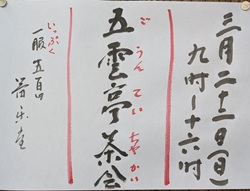 三月二十二日(日)
九時〜十六時
五雲亭茶会
ご うん てい ちゃ かい
一服 五百円
いっぷく